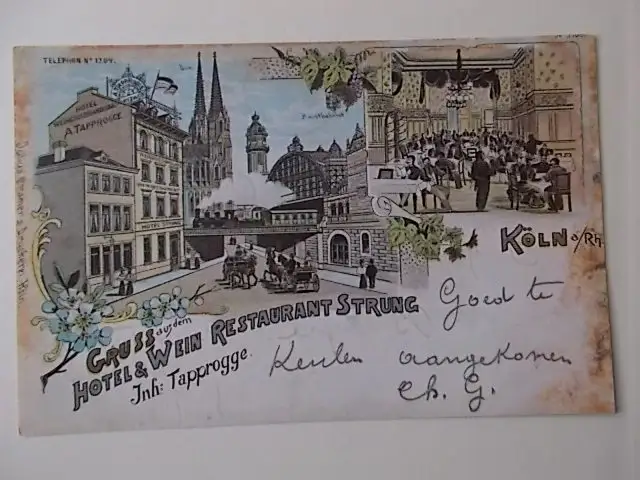 TELEPHON Nº 1704.
HOTEL
A. TAPPROGGE
HOTEL
KÖLN a/Rh.
GRUSS aus dem
HOTEL & WEIN RESTAURANT STRUNG
Inh: Tapprogge.
Goed te
Keulen aangekomen
Ch. G.